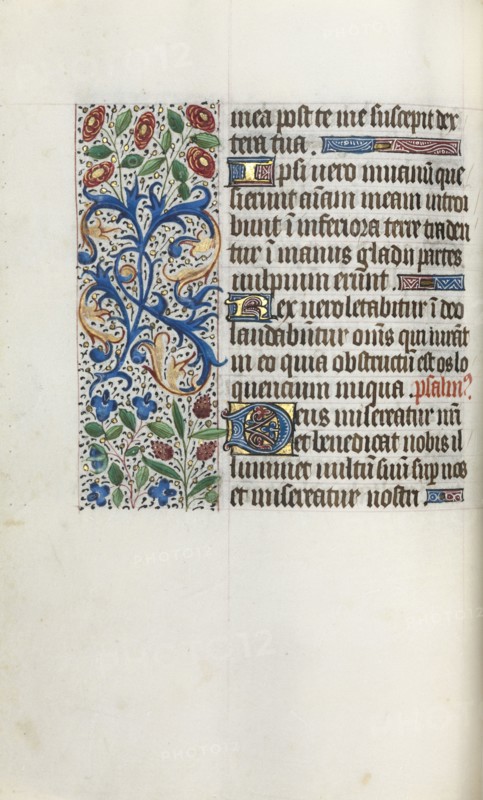 mea post te me suscepit dex
tera tua.
Ipsi vero inuanū que
sierunt aīam meam introi
bunt ī inferiora terre traden
tur ī manus gladii partes
vulpium erunt
Rex vero letabitur ī deo
laudabūtur om̄s qui iurāt
in eo quia obstructū est os lo
quencium iniqua. psalm⁹
Deus misereatur nr̄i
et benedicat nobis il
luminet vultū suū sup nos
et misereatur nostri.
PHOTO12